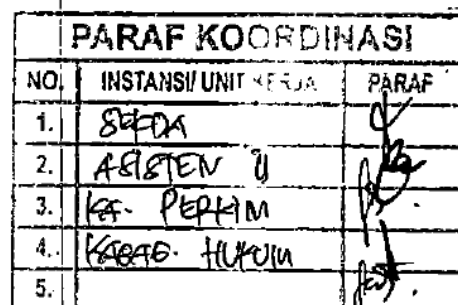 PARAF KOORDINASI
NO. INSTANSI/ UNIT KERJA PARAF
1. SEKDA
2. ASISTEN II
3. KA. PERKIM
4. KABAG. HUKUM
5.